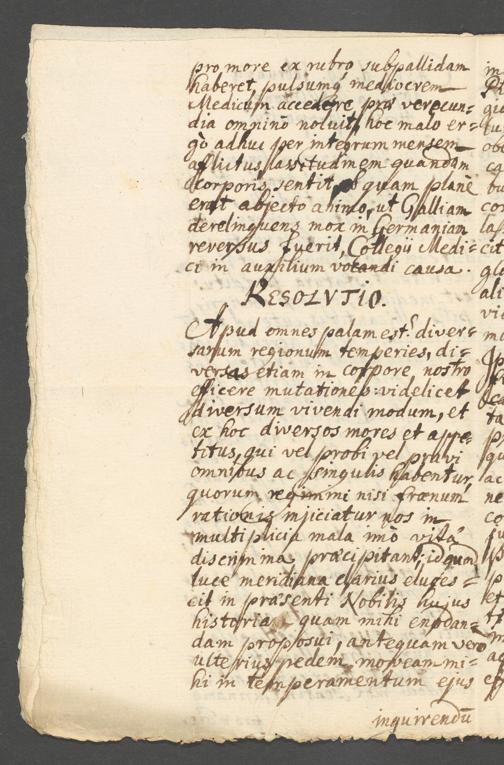 pro more ex rubro subpallidam
haberet, pulsumq́ mediocrem
Medicum accedere præ verecun=
dia omninò noluit, hoc malo er=
gò adhuc per integrum mensem
aflictus lassitudinem quandam
corporis sentit, ob quam planè
erat abjecto animo, ut Galliam
derelinquens mox in Germaniam
reversus fuerit, Collegii Medi=
ci in auxilium vocandi causa.
RESOLVTIO.
Apud omnes palam est: diver=
sarum regionum temperies, di=
versas etiam in corpore nostro
efficere mutationes videlicet
diversum vivendi modum, et
ex hoc diversos mores et appe=
titus, qui vel probi vel pravi
omnibus ac singulis habentur,
quorum regimini nisi frænum
rationis injiciatur nos in
multiplicia mala imò vitæ
discrimina præcipitant, id quod
luce meridiana clarius eluces=
cit in præsenti Nobilis hujus
historia quam mihi enodan=
dam proposui, antequam vero
ulterius pedem moveam mi=
hi in temperamentum ejus
inquirendū